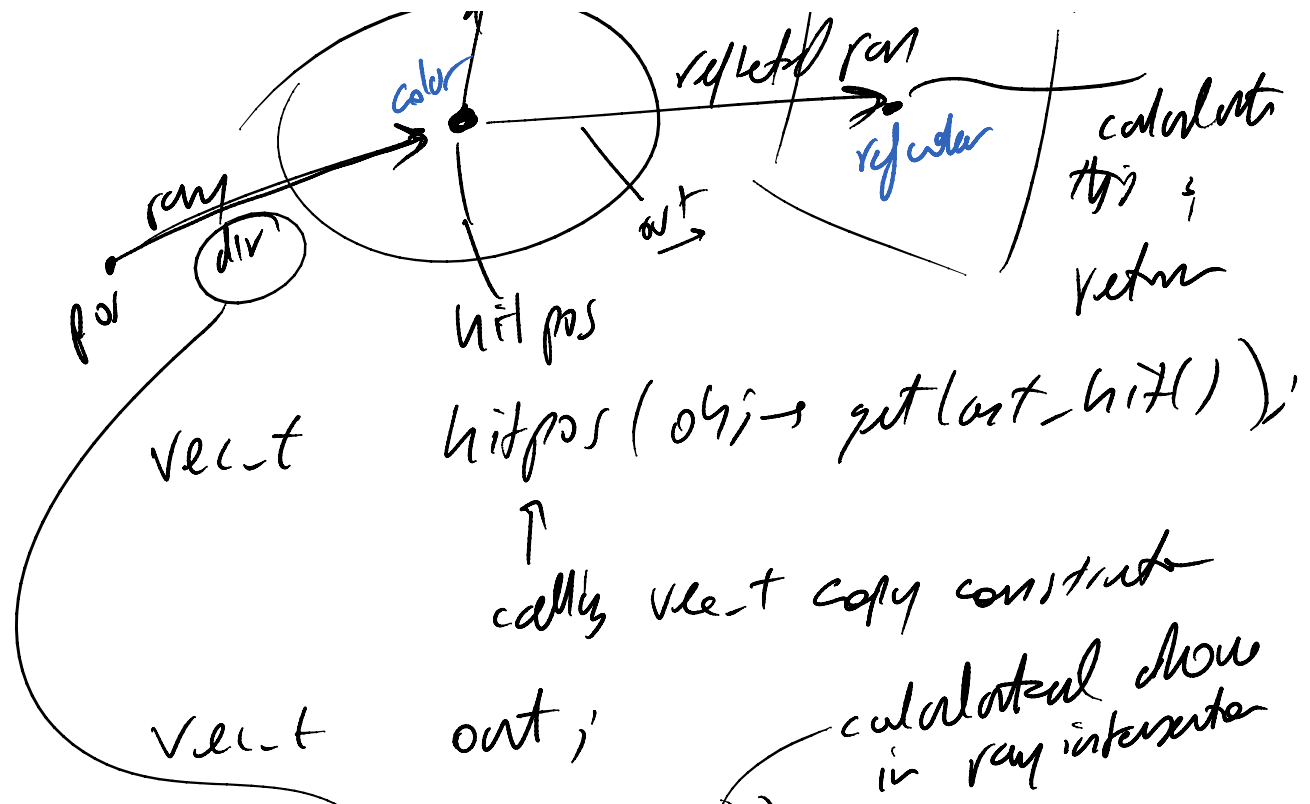 color
reflected ray
ray
dir
pos
out
refcolor
calculate
this ;
return
hitpos
vec_t hitpos(obj→getlast_hit());
calls vec_t copy constructor
vec_t out;
calculated above
in ray intersector